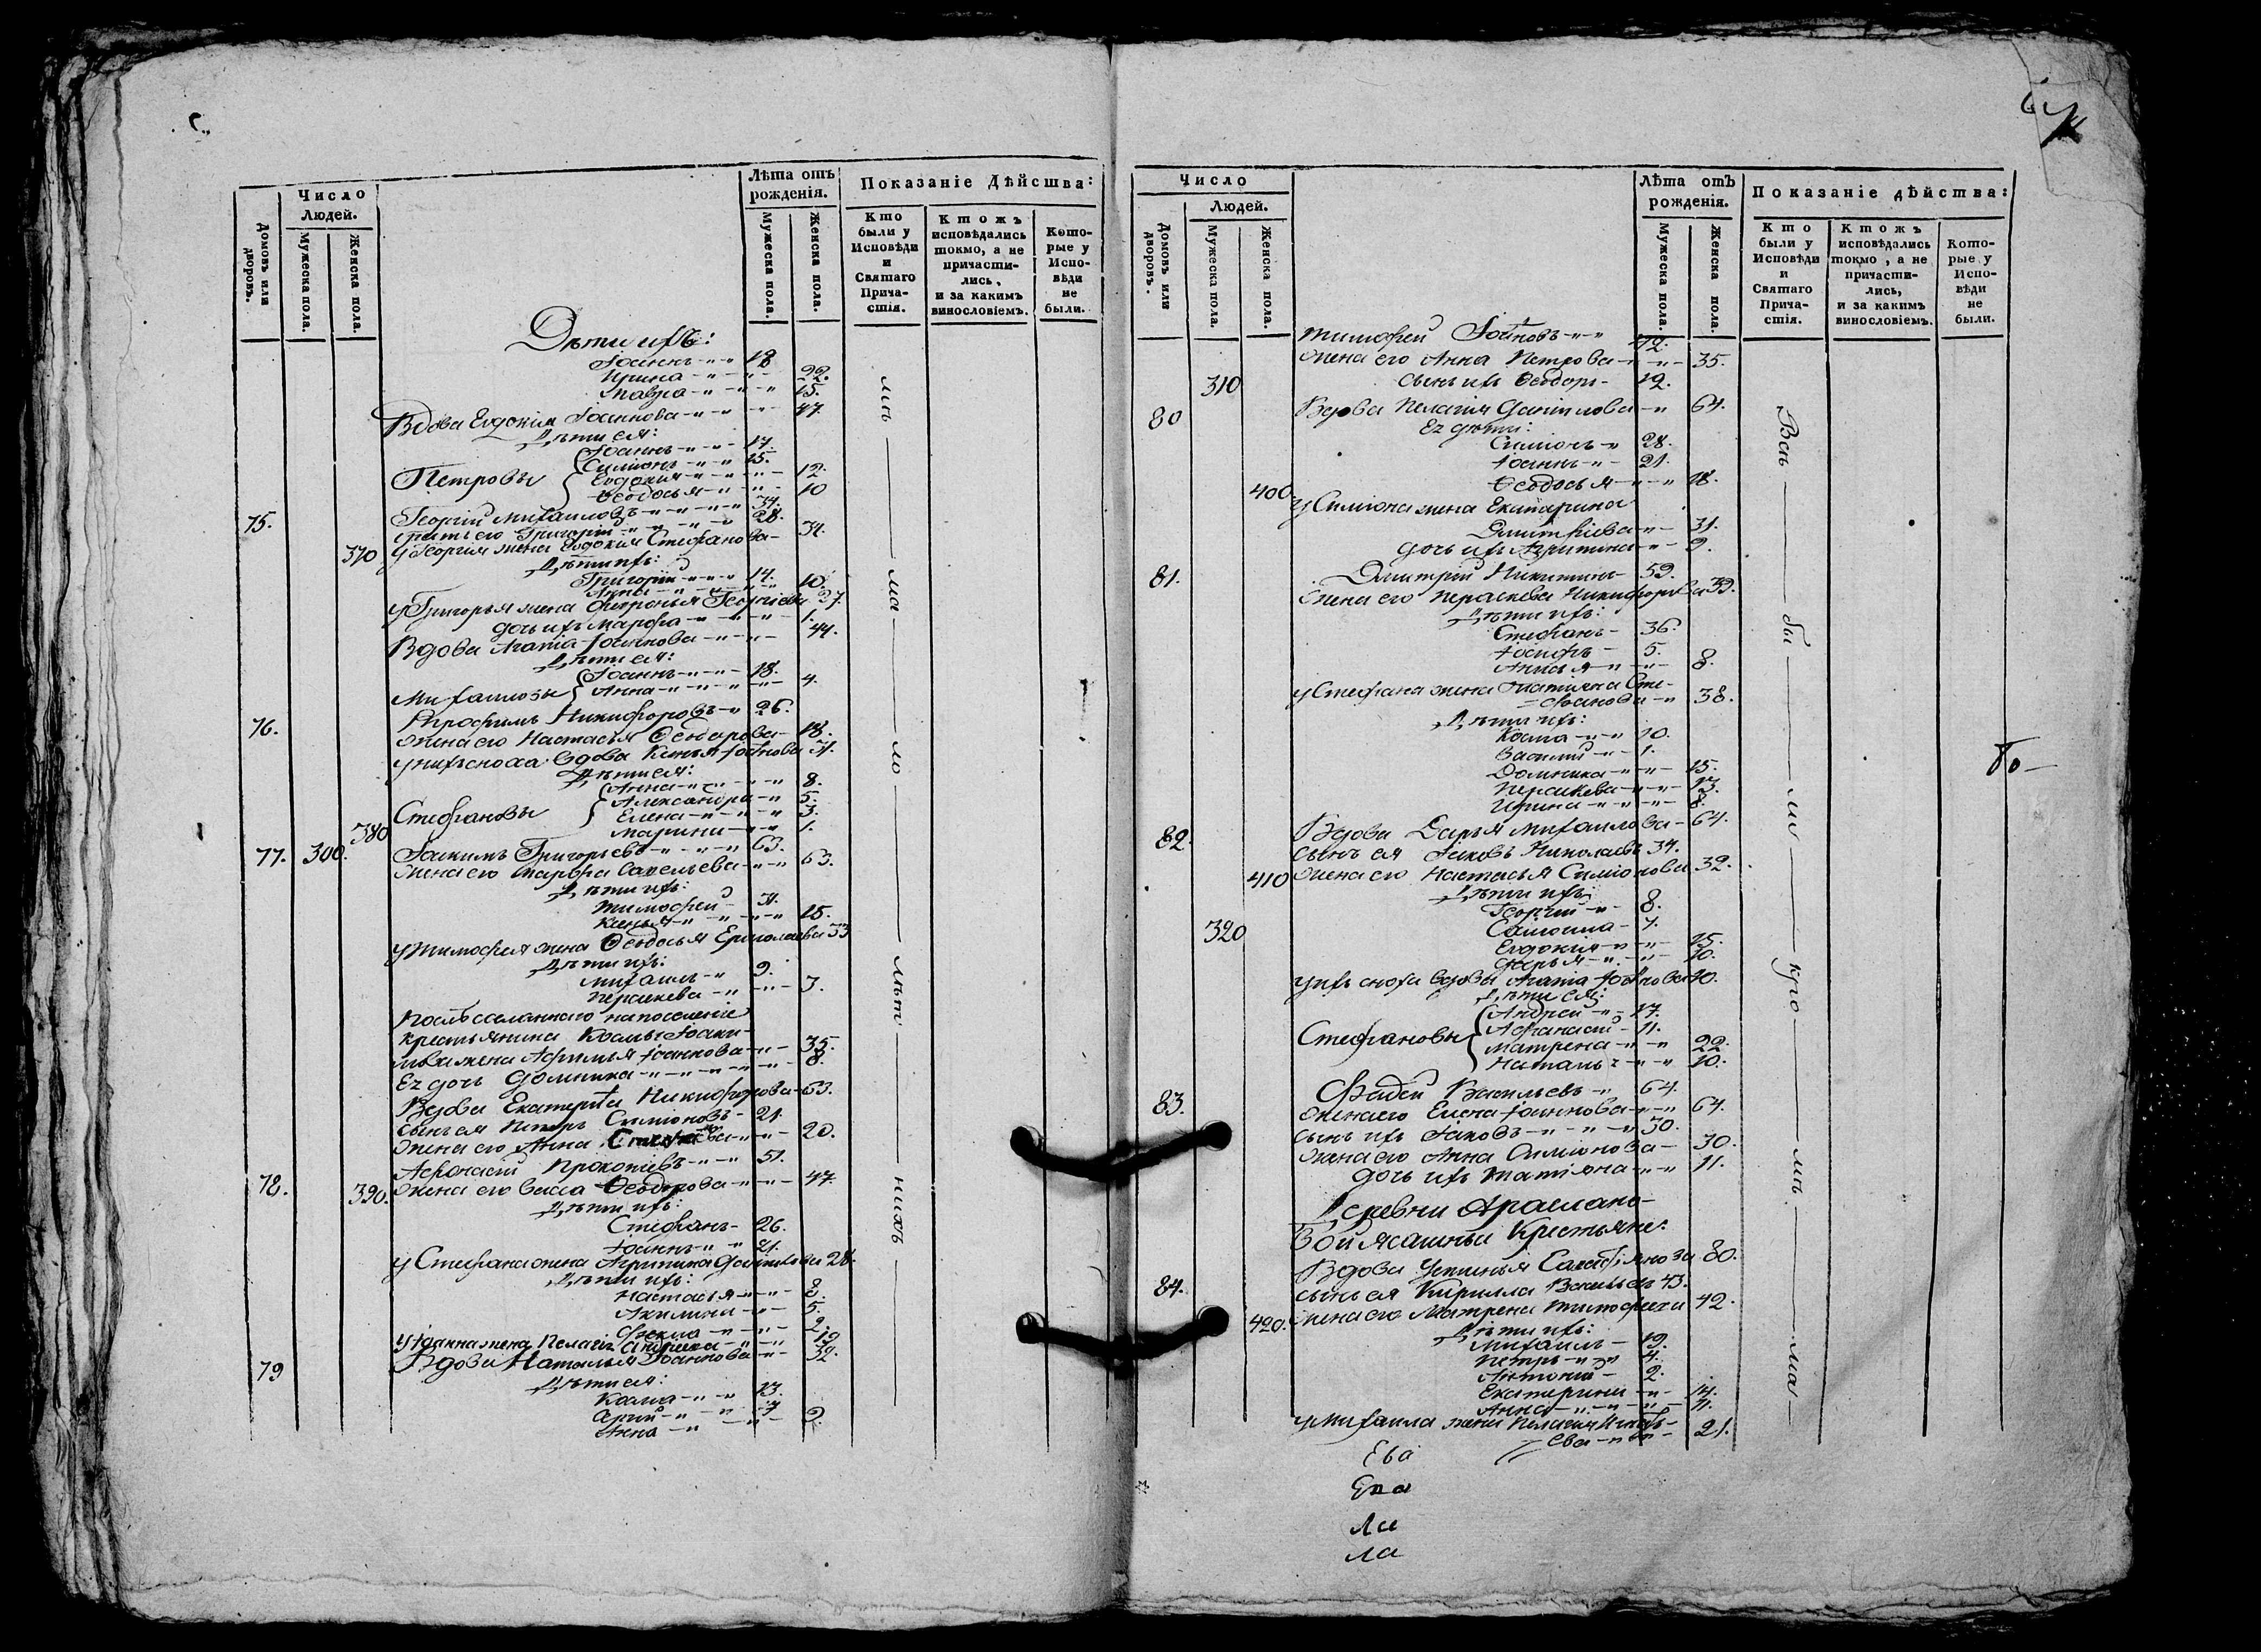 Число
Людей.
Домовъ или дворовъ.
Мужеска пола.
Женска пола.
Лѣта отъ рожденія.
Мужеска пола.
Женска пола.
Показаніе Дѣйства:
Кто были у Исповѣди и Святаго Причастія.
Ктожъ исповѣдались токмо, а не причастились, и за какимъ винословіемъ.
Которые у Исповѣди не были.
Дѣти ихъ:
Іоаннъ 18
Ирина 22.
Мавра 15.
Вдова Евдокія Іоаннова 47.
Дѣти ея:
Іоаннъ 17.
Симіонъ 15.
Петровы Евдокия 12.
Ѳеодосья 10
75. Георгій Михаиловъ 34.
братъ его Григорій 28.
370 У Георгія жена Евдокія Стефанова 34.
Дѣти ихъ:
Григорій 14.
Анна 10.
У Григорья жена Георгіева 27.
дочь ихъ Марфа 1.
Вдова Агапія Іоаннова 44.
Дѣти ея:
Іоаннъ 18.
Михаиловы Анна 4.
76. Никифоровъ 26.
Жена его Настасья Ѳеодорова 18.
у нихъ сноха вдова Ксенья Іоаннова 31.
Дѣти ея:
Анна 8.
Александра 5.
Стефановы Елена 3.
380 Марина 1.
77. 300. Іоакимъ Григорьевъ 63.
Жена его Марфа Савельева 63.
Дѣти ихъ:
Тимофей 31.
Ксенья 15.
У Тимофея жена Ѳеодосья Ермолаева 33
Дѣти ихъ:
Михаилъ 9.
Параскева 3.
Посль сосланнаго на поселеніе
крестьянина Космы Іоаки-
мова жена Афимья Іоаннова 35.
Ея дочь Домника 8.
Вдова Екатерина Никифорова 63.
Сынъ ея Петръ Симіоновъ 21.
Жена его Анна 20.
78. Афонасій Прокопіевъ 51.
390. Жена его Васса Ѳеодорова 47.
Дѣти ихъ:
Стефанъ 26.
Іоаннъ 21.
У Стефана жена Агрипина Данилова 28.
Дѣти ихъ:
Настасья 8.
Акилина 5.
Фекла 2.
У Іоанна жена Пелагія Андреева 19
79 Вдова Наталья Іоаннова 32.
Дѣти ея:
Косма 13.
7
Анна 2.
Число
Людей.
Домовъ или дворовъ.
Мужеска пола.
Женска пола.
Лѣта отъ рожденія.
Мужеска пола.
Женска пола.
Показаніе дѣйства:
Кто были у Исповѣди и Святаго Причастія.
Ктожъ исповѣдались токмо, а не причастились, и за какимъ винословіемъ.
Которые у Исповѣди не были.
Тимофей Іоанновъ 42.
Жена его Анна Петрова 35.
310 Сынъ ихъ Ѳеодоръ 12.
80 Вдова Пелагія Даніилова 64.
Ея дѣти:
Симіонъ 28.
Іоаннъ 21.
400. Ѳеодосья 18.
У Симіона жена Екатарина
Димитріева 31.
дочь ихъ Агрипина 9.
81. Димитрій Никитинъ 59.
Жена его Параскева Никифорова 59.
Дѣти ихъ:
Стефанъ 36.
Іосифъ 5.
Анисья 8.
У Стефана жена Татіяна Сте-
фанова 38.
Дѣти ихъ:
Косма 10.
Василій 1.
Домника 15.
Параскева 13.
Ирина 8.
82. Вдова Дарья Михаилова 64.
Сынъ ея Іаковъ Николаевъ 34.
410 Жена его Настасья Симіонова 32.
Дѣти ихъ:
Георгій 8.
320 7.
Евдокія 15.
Дарья 10.
у нихъ сноха вдова Агапія Іоаннова 40.
Дѣти ея:
Андрей 17.
Афанасій 11.
Стефановы Матрена 22.
Наталья 10.
83. Фадей Васильевъ 64.
Жена его Елена Іоаннова 64.
Сынъ ихъ Іаковъ 30.
Жена его Анна Симіонова 30.
дочь ихъ Татіяна 11.
Деревни Арасланo-
вой ясашныи Крестьяне.
Вдова Устинья 80.
84. Сынъ ея Кирилла Васильевъ 43.
420. Жена его Матрена Тимофеева 42.
Дѣти ихъ:
Михаилъ 19.
Петръ 4.
Антоній 2.
Екатерина 14.
Анна 11.
У Михаила жена Пелагия Игнать-
ева 21.
Ева
Ла
Всѣ бы